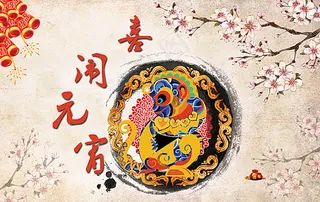 喜
闹
元
宵